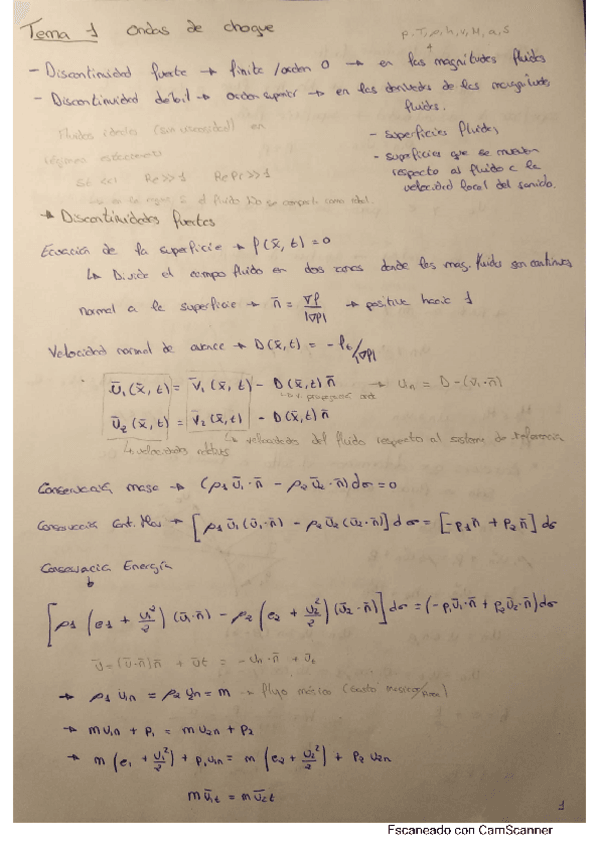 Tema 1 Ondas de choque
p, T, ρ, h, v, M, a, s
- Discontinuidad fuerte → finita/orden 0 → en las magnitudes fluidas
- Discontinuidad débil → orden superior → en las derivadas de las magnitudes fluidas.
Fluidos ideales (sin viscosidad) en
régimen estacionario
Re>>1 RePr>>1
- superficies fluidas
- superficies que se mueven
respecto al fluido a la
velocidad local del sonido.
→ Discontinuidades fuertes
Ecuación de la superficie → f(x̄, t) = 0
↳ Divide el campo fluido en dos zonas donde las mag. fluidas son continuas
normal a la superficie → n̄ = ∇f/|∇f| → positiva hacia 1
Velocidad normal de avance → D(x̄, t) = - ft/|∇f|
ū₁(x̄, t) = v̄₁(x̄, t) - D(x̄, t) n̄ → un = D - (v̄₁·n̄)
ū₂(x̄, t) = v̄₂(x̄, t) - D(x̄, t) n̄
↳ velocidades del fluido respecto al sistema de referencia
↳ velocidades relativas
Conservación masa → (ρ₁ ū₁·n̄ - ρ₂ ū₂·n̄)dσ = 0
Conservación Cant. Mov → [ρ₁ ū₁(ū₁·n̄) - ρ₂ ū₂(ū₂·n̄)] dσ = [-p₁n̄ + p₂n̄] dσ
Conservación Energía
[ρ₁ (e₁ + u₁²/2) (ū₁·n̄) - ρ₂ (e₂ + u₂²/2) (ū₂·n̄)] dσ = (-p₁ū₁·n̄ + p₂ū₂·n̄)dσ
ū = (ū·n̄)n̄ + ūt = -un·n̄ + ūt
→ ρ₁ u₁n = ρ₂ u₂n = m → flujo másico (Gasto másico/Área)
→ m u₁n + p₁ = m u₂n + p₂
→ m (e₁ + u₁²/2) + p₁u₁n = m (e₂ + u₂²/2) + p₂ u₂n
m ū₁t = m ū₂t
1
Escaneado con CamScanner